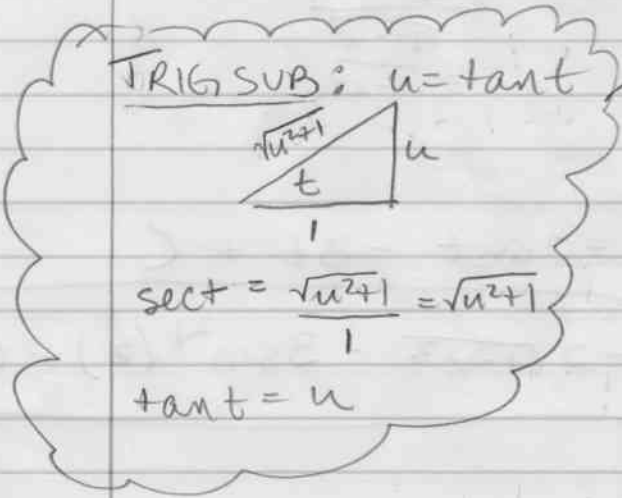 TRIG SUB: u = tan t
√u²+1
u
t
1
sect = √u²+1 / 1 = √u²+1
tan t = u